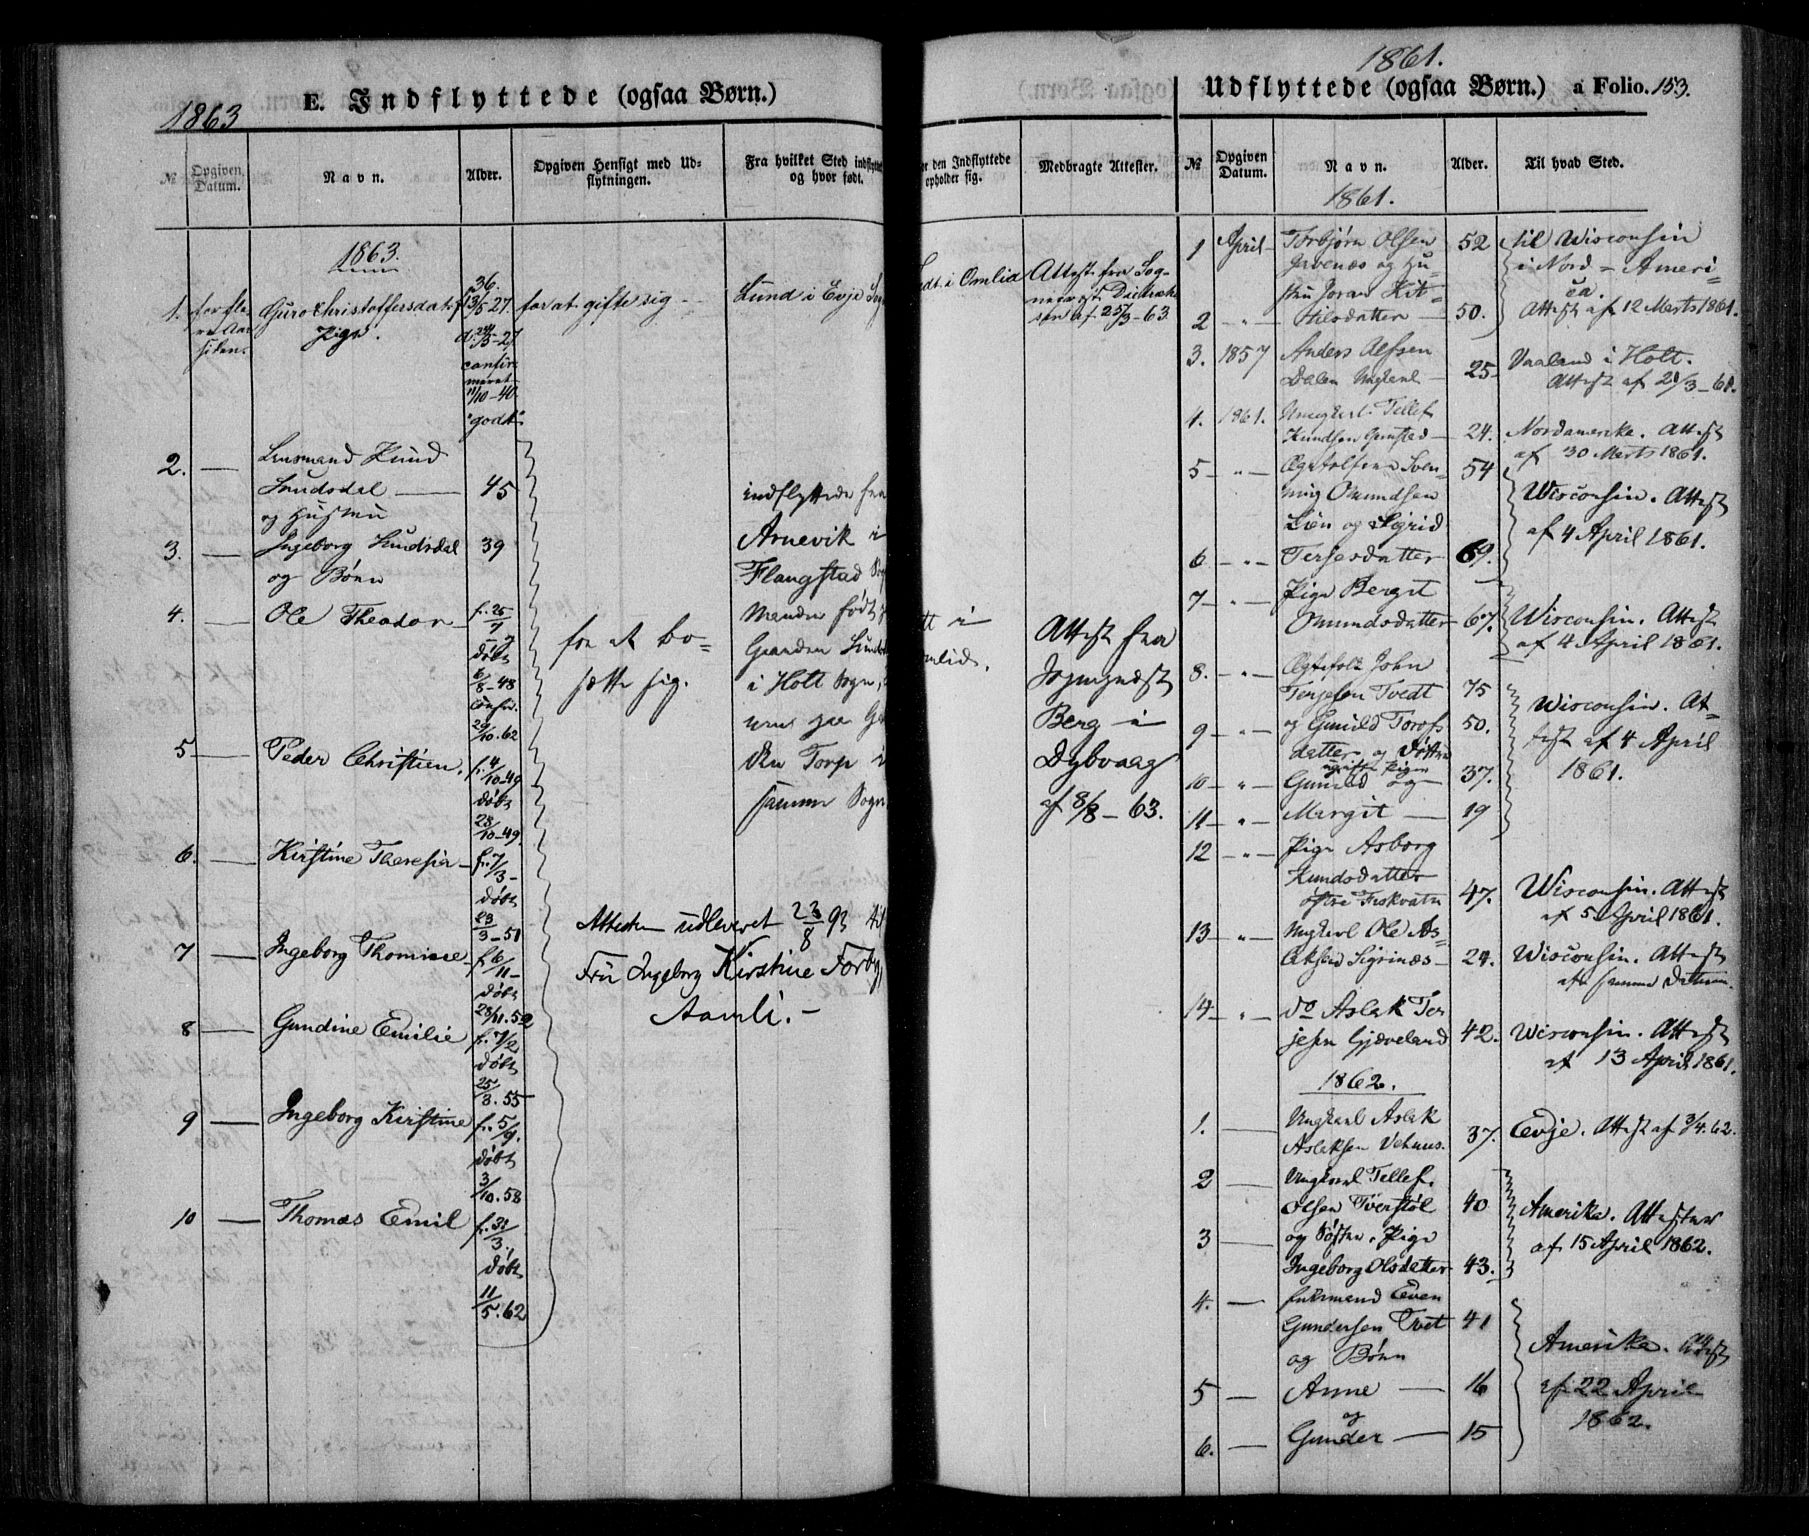 1863
E. Indflyttede (ogsaa Børn.)
№
Opgiven Datum.
Navn.
Alder.
Opgiven Hensigt med Udflytningen.
Fra hvilket Sted indflytte
og hvor født.
1863.
1.
for fle
re Aar
siden.
Guro Christoffersdatt
Pige.
36.
f 13/5 27.
d. 24/5 - 27
confir
meret
11/10 - 40.
"godt"
for at gifte sig
Lund i Evje Sog
2. —
Lensmand Knud
Lundsdal —
og Hustru
45
3. —
Ingeborg Lundsdal
og Børn
39
4. —
Ole Theodor
f. 25/7
døbt
6/8 - 48
Conf.
29/10. 62
5 —
Peder Christien.
f. 4/10-49
døbt
28/10-49.
6. —
Kirstine Theresia
f. 7/3 -
døbt
23/3 - 51
7 —
Ingeborg Thomine
f 6/11 -
døbt
28/11. 52
8 —
Gundine Emilie
f. 7/2
døbt
25/3. 55
9 —
Ingeborg Kirstine
f. 5/9.
døbt
3/10. 58
10 —
Thomas Emil
f. 31/3.
døbt
11/5. 62
for at bo=
sætte sig.
indflyttede fra
Arnevik i
Flangstad Sog
Manden født p
Gaarden Lunds
i Holt Sogn,
nen paa Ga
den Torp i
samme Sogn
Attesten udleveret 23/8 93 til
Fru Ingeborg Kirstine Forby,
Aamli. —
er den Indflyttede
opholder sig.
Medbragte Attester.
dt. i Omlid
Attest fra Sog=
nepræst Diedrich
sen af 25/3 - 63.
tt i
mlid.
Attest fra
Sognepræst
Berg i
Dybvaag
af 8/8 - 63.
1861.
Udflyttede (ogsaa Børn.) a Folio. 153.
№
Opgiven Datum.
Navn.
Alder.
Til hvad Sted.
1861.
1 April
Torbjørn Olsen
Jovenæs og Hu=
stru Joran Kit=
52
til Wisconsin
i Nord - Ameri
ca.
2 " —
tilsdatter —
50.
Attest af 12 Marts 1861.
3. 1857
Anders Alfsen
Dalen Ungkarl —
25
Vaaland i Holt.
Attest af 21/3 - 61.
4. 1861.
Ungkarl Tellef
Knudsen Gimstad —
24.
Nordamerika. Attest
af 30 Marts 1861.
5 — " —
Ægtefolkene Sven=
ning Omundsen
Lien og Sigrid
54
Wisconsin. Attest
af 4 April 1861.
6 — " —
Terjesdatter
69.
7 — " —
Pige Bergit
Omundsdatter
67.
Wisconsin. Attest
af 4 April 1861.
8. — " —
Ægtefolk John
Terjesen Tvedt
75
9 — " —
og Gunild Torofs
datter og Døttre
50.
Wisconsin. At=
test af 4 April
1861.
10 — " —
ugifte Piger
Gunild og
37.
11 — " —
Margit —
19
12 — " —
Pige Asborg
Knudsdatter
østre Fiskvatn
47.
Wisconsin. Attest
af 5 April 1861.
13 — " —
Ungkarl Ole As=
laksen Sigrinæs —
24.
Wisconsin. Attest
af samme Datum.
14 — " —
do Aslak Ter
jesen Gjæveland
42.
Wisconsin. Attest
af 13 April 1861.
1862.
1. —
Ungkarl Aslak
Aslaksen Vehuus.
37.
Evje. Attest af 3/4. 62.
2 —
Ungkarl Tellef
Olsen Tverstøl
40
3 —
og Søster, Pige
Ingeborg Olsdatter
43.
Amerika. Attester
af 15 April 1862.
4. —
Enkemand Even
Gundersen Tvet
og Børn
41
Amerika. Attest
af 22 April
1862.
5 —
Anne —
16
og
6. —
Gunder —
15